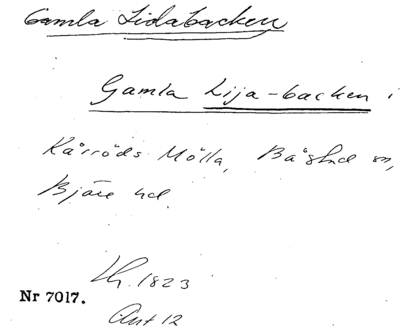 Gamla Lidabacken
Gamla Lija-backen i
Kårröds Mölla, Båstad sn,
Bjäre hd.
Lh. 1823
Nr 7017.
Ant 12